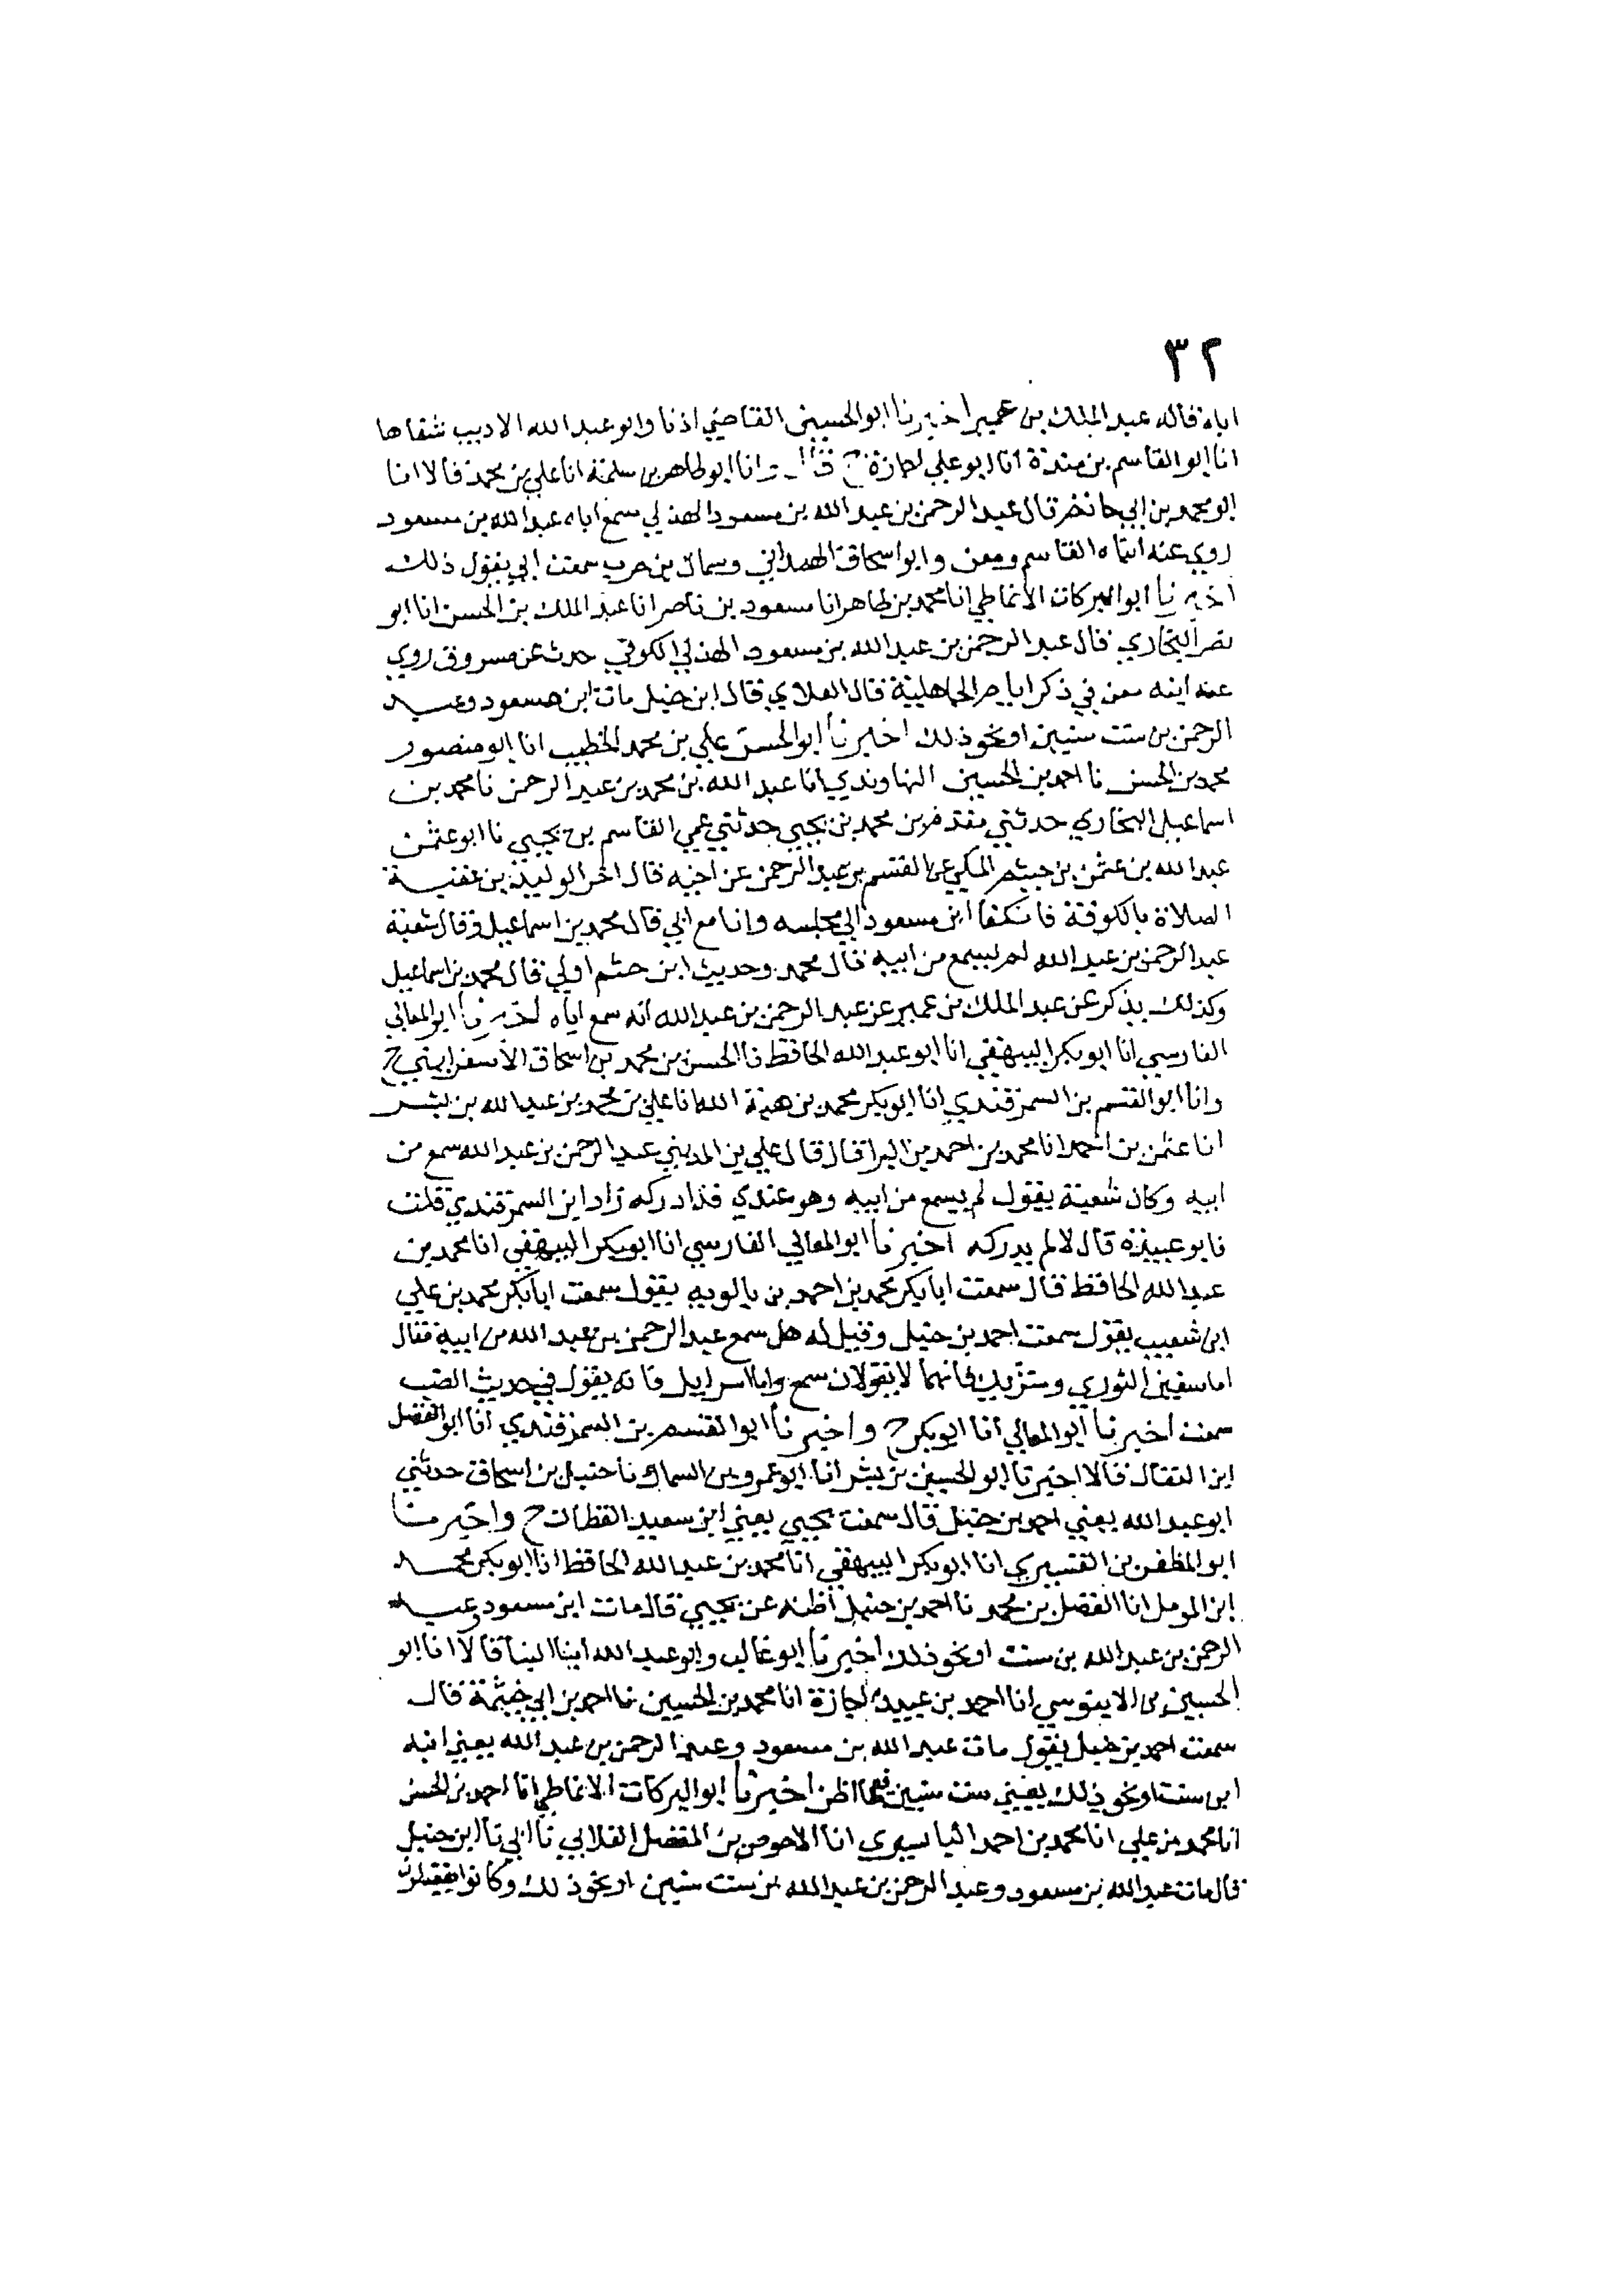 ٣٢
اباه قاله عبد الملك بن عمير اخبرنا ابو الحسين القاضي اذنا وابو عبد الله الاديب شفاها
انا ابو القاسم بن مندة انا ابو علي اجازة ح قال وانا ابو طاهر بن سلمة انا علي بن محمد قالا انا
ابو محمد بن ابي حاتم قال عبد الرحمن بن عبد الله بن مسعود الهذلي سمع اباه عبد الله بن مسعود
روي عنه ابناه القاسم ومعن وابو اسحاق الهمداني وسماك بن حرب سمعت ابي يقول ذلك
اخبرنا ابو البركات الانماطي انا محمد بن طاهر انا مسعود بن ناصر انا عبد الملك بن الحسن انا ابو
نصر البخاري قال عبد الرحمن بن عبد الله بن مسعود الهذلي الكوفي حدث عن مسروق روي
عنه ابنه معن في ذكر ايام الجاهلية قال الغلابي قال ابن حنبل مات ابن مسعود وعبد
الرحمن بن ست سنين او نحو ذلك اخبرنا ابو الحسن علي بن محمد الخطيب انا ابو منصور
محمد بن الحسن نا احمد بن الحسين النهاوندي انا عبد الله بن محمد بن عبد الرحمن نا محمد بن
اسماعيل البخاري حدثني مقدم بن محمد بن يحيي حدثني عمي القاسم بن يحيي نا ابو عثمن
عبد الله بن عثمن بن خيثم المكي عن القسم بن عبد الرحمن عن ابيه قال اخر الوليد بن عقبة
الصلاة بالكوفة فانكفا ابن مسعود الي مجلسه وانا مع ابي قال محمد بن اسماعيل وقال شعبة
عبد الرحمن بن عبد الله لم يسمع من ابيه قال محمد وحديث ابن خثيم اولي قال محمد بن اسماعيل
وكذلك يذكر عن عبد الملك بن عمير عن عبد الرحمن بن عبد الله انه سمع اباه اخبرنا ابو المعالي
الفارسي انا ابو بكر البيهقي انا ابو عبد الله الحافظ نا الحسن بن محمد بن اسحاق الاسفرايني ح
وانا ابو القسم بن السمرقندي انا ابو بكر محمد بن هبة الله انا علي بن محمد بن عبد الله بن بشر
انا عثمن بن احمد انا محمد بن احمد بن البرا قال قال علي بن المديني عبد الرحمن بن عبد الله سمع من
ابيه وكان شعبة يقول لم يسمع من ابيه وهو عندي قد ادركه زاد ابن السمرقندي قلت
فابو عبيدة قال لا لم يدركه اخبرنا ابو المعالي الفارسي انا ابو بكر البيهقي انا محمد بن
عبد الله الحافظ قال سمعت ابا بكر محمد بن احمد بن بالويه يقول سمعت ابا بكر محمد بن علي
ابن شعيب يقول سمعت احمد بن حنبل وقيل له هل سمع عبد الرحمن بن عبد الله من ابيه فقال
اما سفين الثوري وشريك فانهما لا يقولان سمع واما اسراييل فانه يقول في حديث الضب
سمعت اخبرنا ابو المعالي انا ابو بكر ح واخبرنا ابو القسم بن السمرقندي انا ابو الفضل
ابن البقال قالا اخبرنا ابو الحسين بن بشر انا ابو عمرو بن السماك نا حنبل بن اسحاق حدثني
ابو عبد الله يعني احمد بن حنبل قال سمعت يحيي يعني ابن سعيد القطان ح واخبرنا
ابو المظفر بن القشيري انا ابو بكر البيهقي انا محمد بن عبد الله الحافظ انا ابو بكر محمد
ابن المومل انا الفضل بن محمد نا احمد بن حنبل اظنه عن يحيي قال مات ابن مسعود وعبد
الرحمن بن عبد الله بن ست او نحو ذلك اخبرنا ابو غالب وابو عبد الله ابنا البنا قالا انا ابو
الحسين بن الابنوسي انا احمد بن عبيد اجازة انا محمد بن الحسين نا احمد بن ابي خيثمة قال
سمعت احمد بن حنبل يقول مات عبد الله بن مسعود وعبد الرحمن بن عبد الله يعني ابنه
ابن ست او نحو ذلك يعني ست سنين فيما اظن اخبرنا ابو البركات الانماطي انا احمد بن الحسن
انا محمد بن علي انا محمد بن احمد البابسيري انا الاحوص بن المفضل الغلابي نا ابي نا ابن حنبل
قال مات عبد الله بن مسعود وعبد الرحمن بن عبد الله بن ست سنين او نحو ذلك وكانوا يقولون